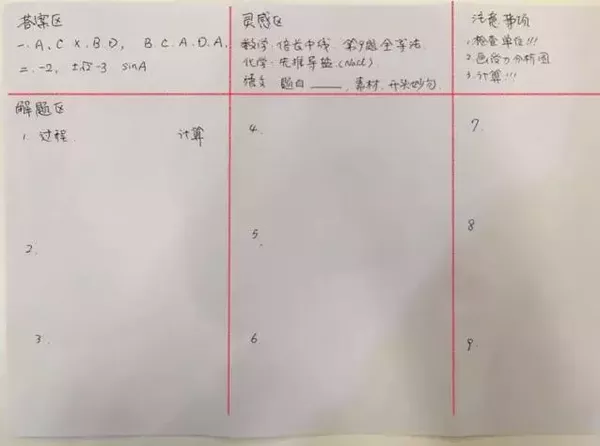 答案区
一. A. C × B. D, B. C. A. D. A.
二. -2, ±√2 -3 sinA
灵感区
数学: 倍长中线, 第9题全等法
化学: 先推导盐 (NaCl)
语文 题目____, 素材, 开头妙句
注意事项
1. 检查单位!!!
2. 画受力分析图
3. 计算!!!
解题区
1. 过程 计算
2.
3.
4.
5.
6
7.
8
9.